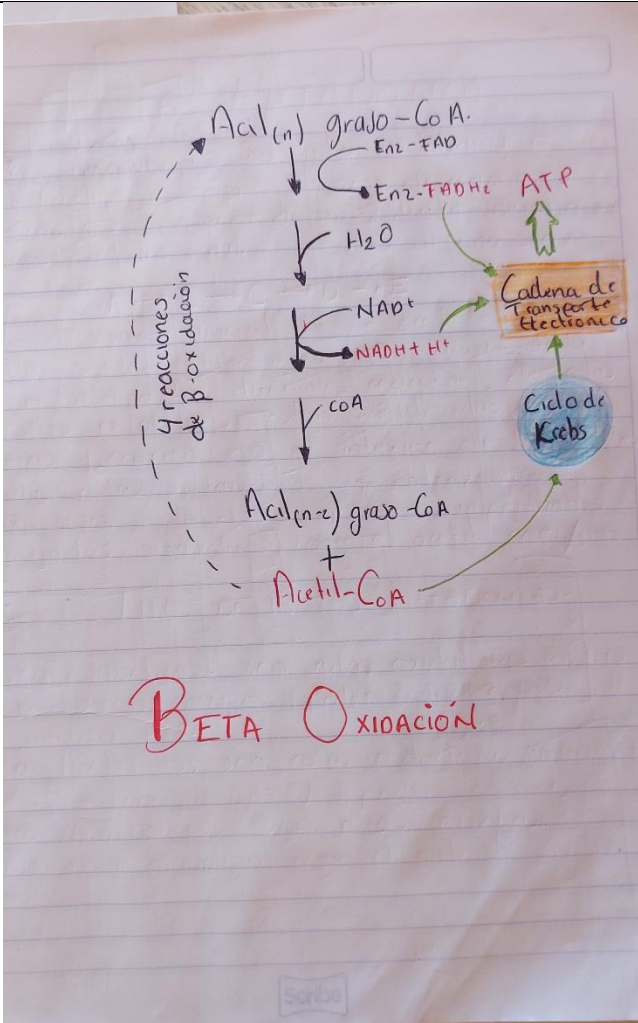 Acil(n) graso-CoA.
Enz-FAD
Enz-FADH2
ATP
H2O
Cadena de
Transporte
Electronico
NAD+
NADH+ H+
4 reacciones
de β-oxidación
CoA
Ciclo de
Krebs
Acil(n-2) graso-CoA
+
Acetil-CoA
BETA OXIDACIÓN
Scribe